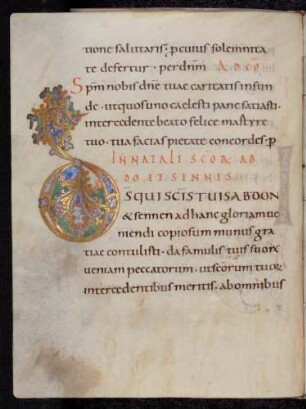 tione salutaris; p cuius solemnita
te defertur · per dnm AD CO
Spm nobis dne tuae caritatis infun
de · ut quos uno caelesti pane satiasti ·
intercedente beato felice martyre
tuo · tua facias pietate concordes · p
IN NATALI SCOR AB
DO ET SENNIS
DS QUI SCIS TUIS ABDON
& sennen ad hanc gloriam ue
niendi copiosum munus gra
tiae contulisti · da famulis tuis suoru
ueniam peccatorum · ut scorum tuoru
intercedentibus meritis · ab omnibus